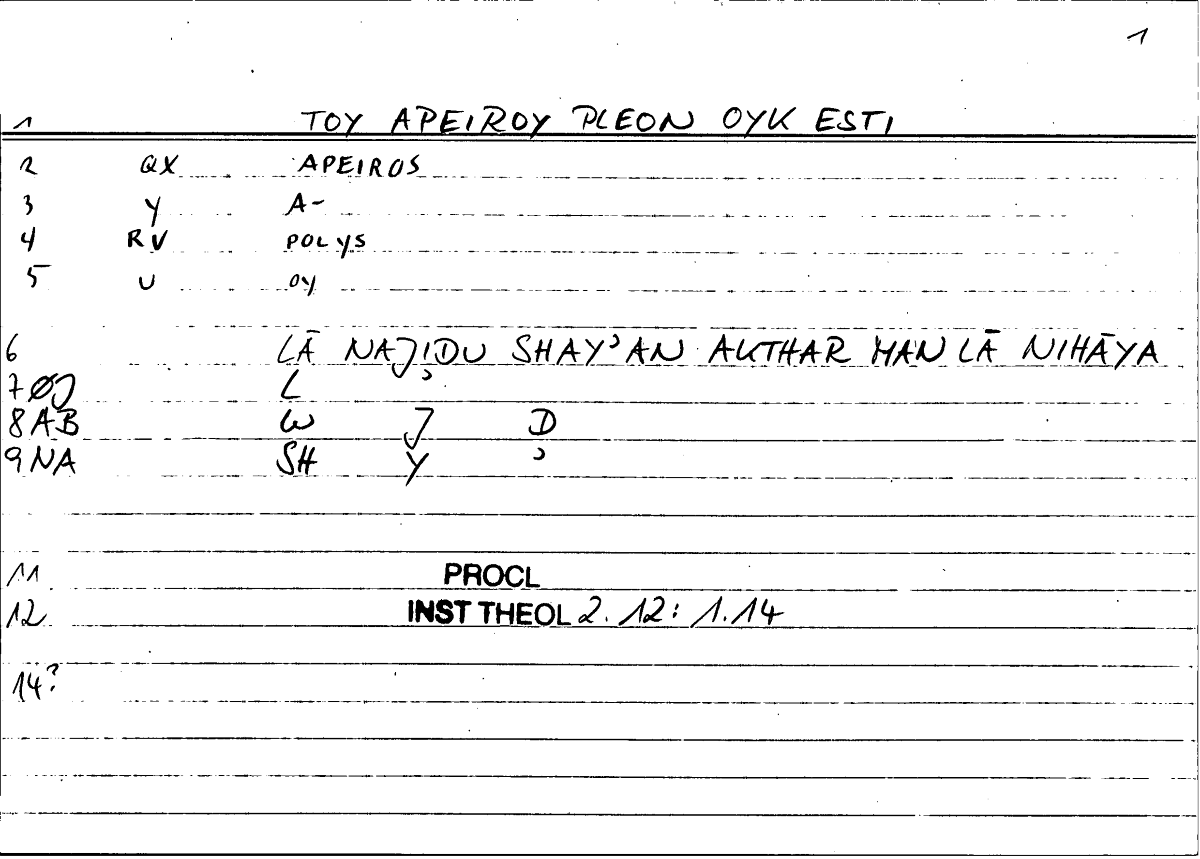 1
1 TOY APEIROY PLEON OYK ESTI
2 QX APEIROS
3 Y A-
4 RV POLYS
5 U OY
6 LĀ NAJIDU SHAY'AN AKTHAR MAN LĀ NIHĀYA
7 ØJ L ʾ
8 AB W J D
9 NA SH Y ʾ
11 PROCL
12 INST THEOL 2. 12: 1.14
14?